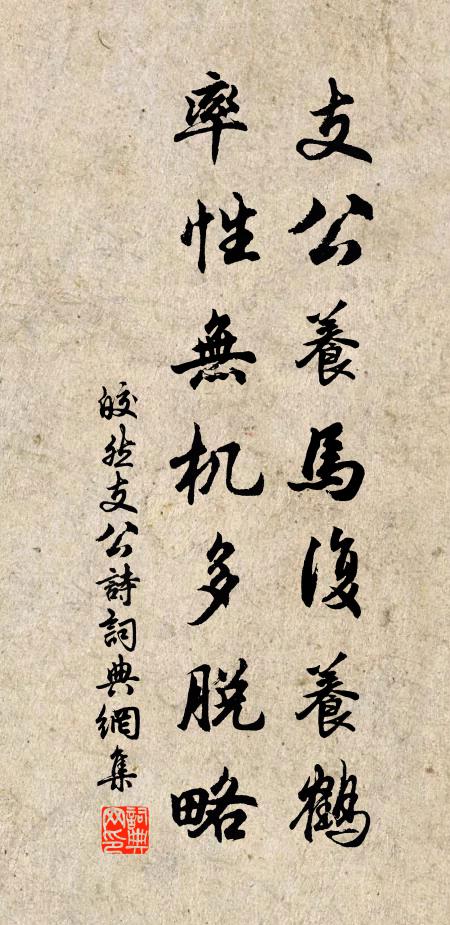 支公養馬復養鶴
率性無机多脱略
皎然支公詩詞典網集
詞典網印